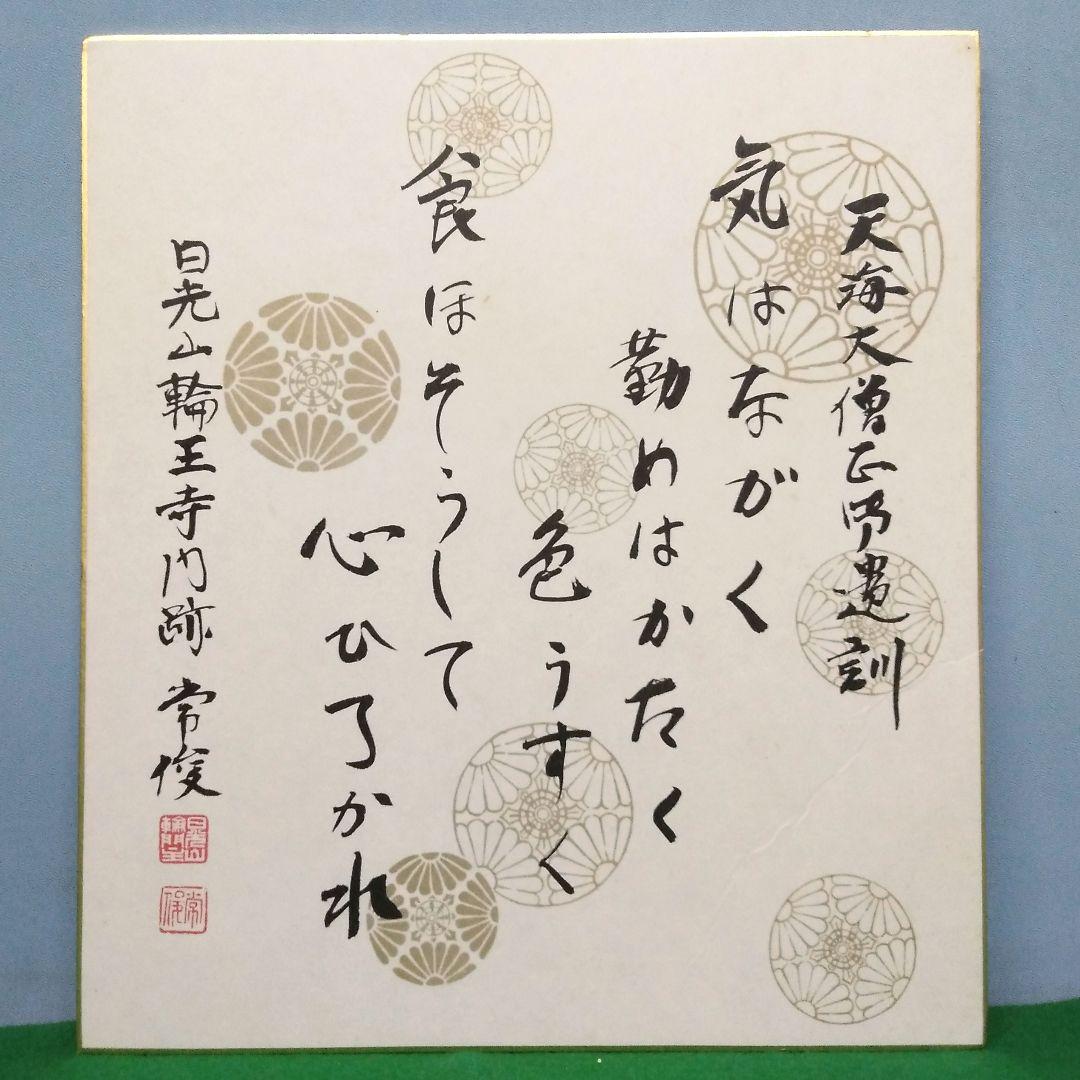 天海大僧正御遺訓
気はながく
勤めはかたく
色うすく
食ほそうして
心ひろかれ
日光山輪王寺門跡 常俊
常俊